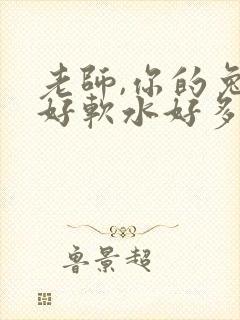 老師,你的兔
好軟水好多
魯景超